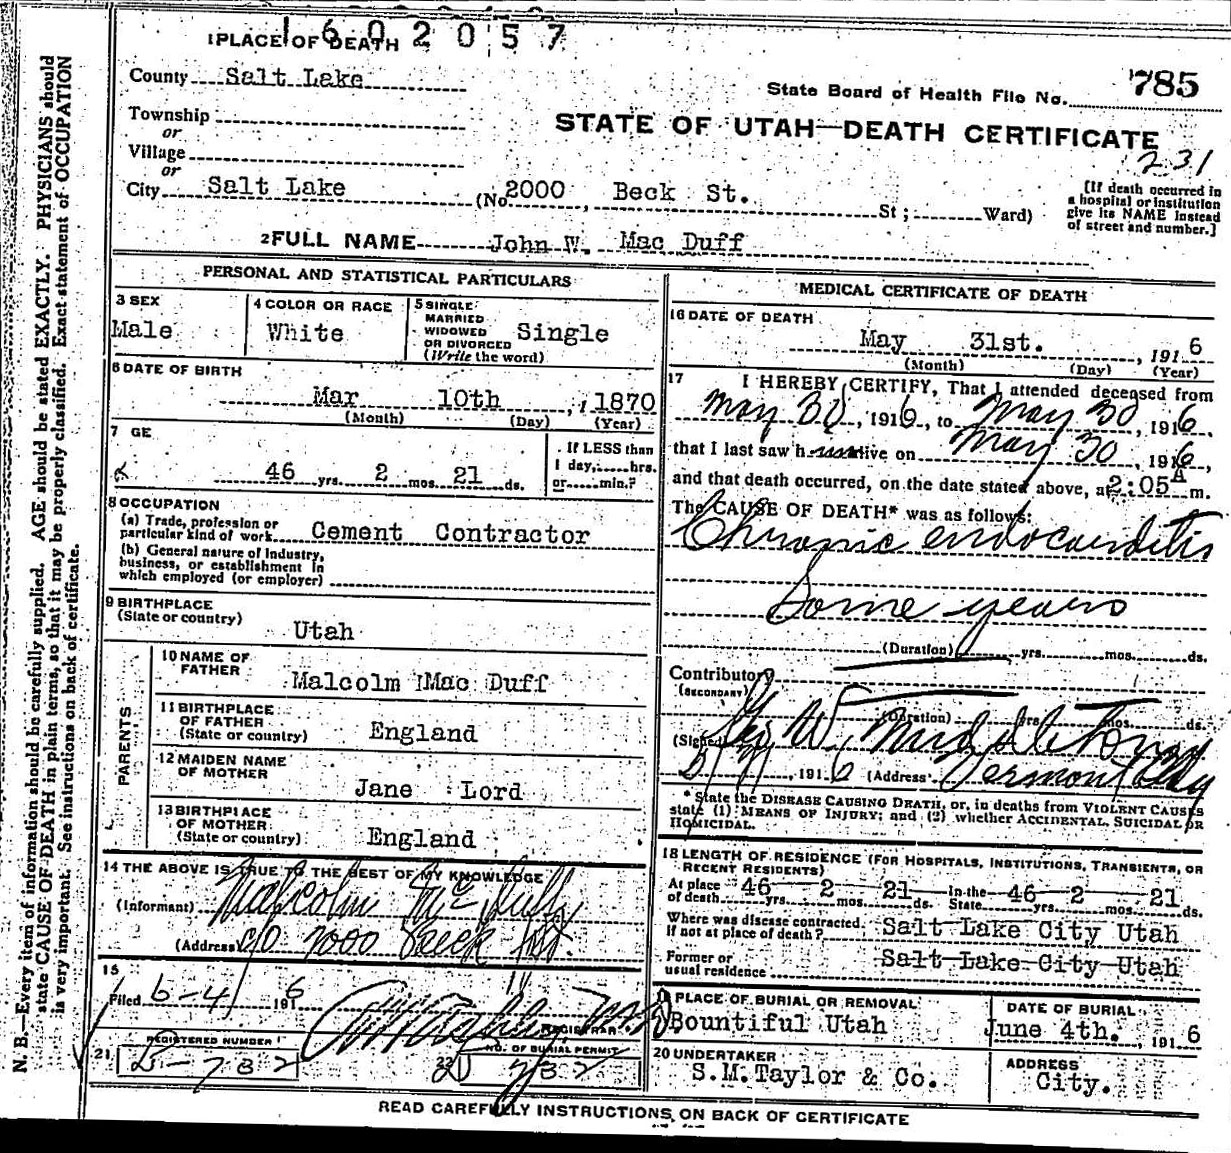 1602057
1 PLACE OF DEATH
County Salt Lake
State Board of Health File No. 785
Township
or
Village
or
STATE OF UTAH—DEATH CERTIFICATE
231
City Salt Lake (No 2000 Beck St. St; Ward)
[If death occurred in
a hospital or institution
give its NAME instead
of street and number.]
2 FULL NAME John W. Mac Duff
PERSONAL AND STATISTICAL PARTICULARS
3 SEX
Male
4 COLOR OR RACE
White
5 SINGLE
MARRIED
WIDOWED
OR DIVORCED
(Write the word)
Single
6 DATE OF BIRTH
Mar 10th, 1870
(Month) (Day) (Year)
7 GE
46 yrs. 2 mos. 21 ds.
If LESS than
1 day, hrs.
or min.?
8 OCCUPATION
(a) Trade, profession or
particular kind of work Cement Contractor
(b) General nature of Industry,
business, or establishment in
which employed (or employer)
9 BIRTHPLACE
(State or country)
Utah
PARENTS
10 NAME OF
FATHER
Malcolm Mac Duff
11 BIRTHPLACE
OF FATHER
(State or country)
England
12 MAIDEN NAME
OF MOTHER
Jane Lord
13 BIRTHPLACE
OF MOTHER
(State or country)
England
14 THE ABOVE IS TRUE TO THE BEST OF MY KNOWLEDGE
(Informant) Malcolm McDuff
(Address c/o 2000 Beck St.
15
Filed 6-4 1916
REGISTRAR
21 REGISTERED NUMBER
D-782
22 NO. OF BURIAL PERMIT
D 782
MEDICAL CERTIFICATE OF DEATH
16 DATE OF DEATH
May 31st. , 1916
(Month) (Day) (Year)
17 I HEREBY CERTIFY, That I attended deceased from
May 30, 1916, to May 30, 1916
that I last saw h alive on May 30 1916,
and that death occurred, on the date stated above, at 2:05 A m.
The CAUSE OF DEATH* was as follows:
Chronic endocarditis
Some years
(Duration) yrs. mos. ds.
Contributory
(SECONDARY)
(Duration) yrs. mos. ds.
(Signed) Geo W. Middleton
, 1916 (Address) Vermont Bldg
* State the DISEASE CAUSING DEATH, or, in deaths from VIOLENT CAUSES
state (1) MEANS OF INJURY; and (2) whether ACCIDENTAL, SUICIDAL OR
HOMICIDAL.
18 LENGTH OF RESIDENCE (FOR HOSPITALS, INSTITUTIONS, TRANSIENTS, OR
RECENT RESIDENTS)
At place
of death 46 yrs. 2 mos. 21 ds. In the
State 46 yrs. 2 mos. 21 ds.
Where was disease contracted.
If not at place of death? Salt Lake City Utah
Former or
usual residence Salt Lake City Utah
PLACE OF BURIAL OR REMOVAL
Bountiful Utah
DATE OF BURIAL
June 4th. , 1916
20 UNDERTAKER
S.M.Taylor & Co.
ADDRESS
City.
READ CAREFULLY INSTRUCTIONS ON BACK OF CERTIFICATE
N. B.—Every item of information should be carefully supplied. AGE should be stated EXACTLY. PHYSICIANS should
state CAUSE OF DEATH in plain terms, so that it may be properly classified. Exact statement of OCCUPATION
is very important. See instructions on back of certificate.